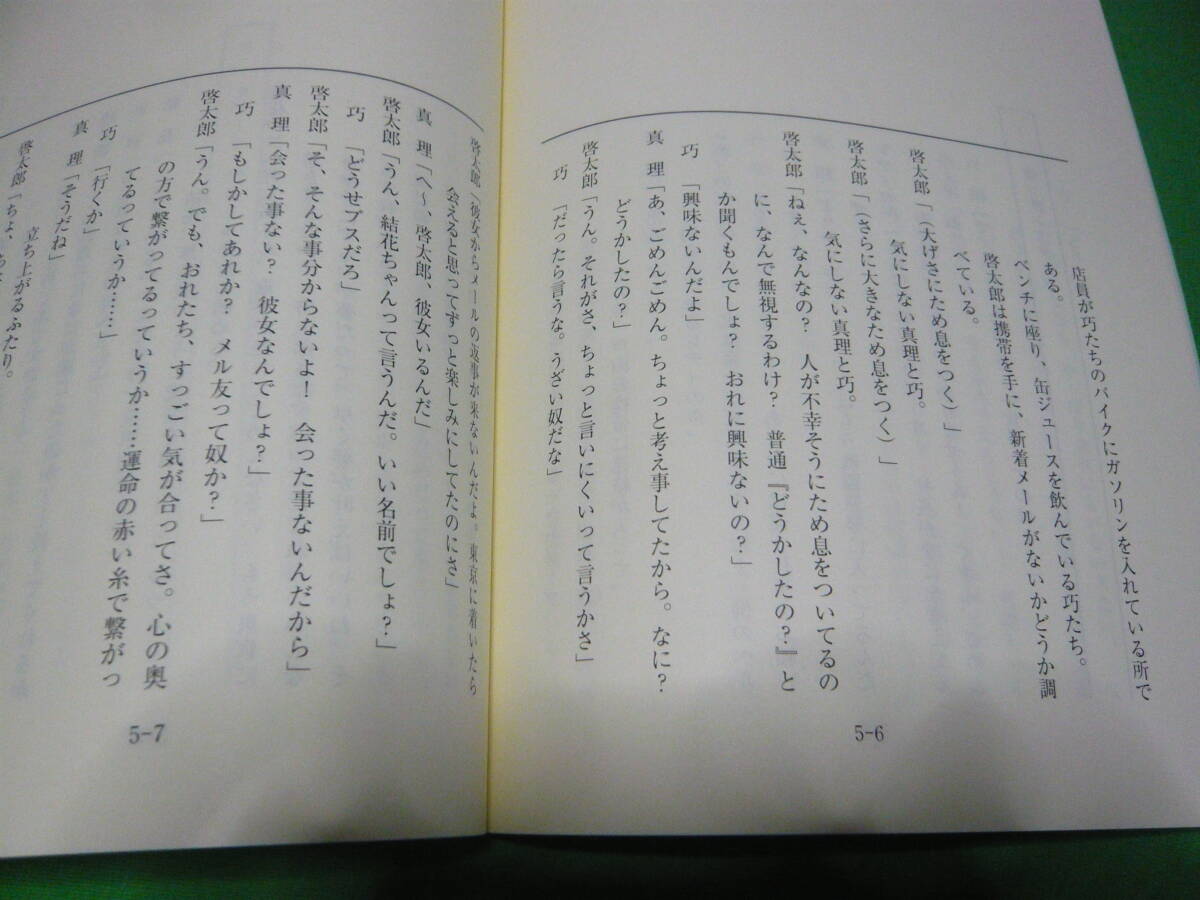 店員が巧たちのバイクにガソリンを入れている所で
ある。
ベンチに座り、缶ジュースを飲んでいる巧たち。
啓太郎は携帯を手に、新着メールがないかどうか調
べている。
啓太郎「(大げさにため息をつく)」
気にしない真理と巧。
啓太郎「(さらに大きなため息をつく)」
気にしない真理と巧。
啓太郎「ねぇ、なんなの? 人が不幸そうにため息をついてるの
に、なんで無視するわけ? 普通『どうかしたの?』と
か聞くもんでしょ? おれに興味ないの?」
巧「興味ないんだよ」
真理「あ、ごめんごめん。ちょっと考え事してたから。なに?
どうかしたの?」
啓太郎「うん。それがさ、ちょっと言いにくいって言うかさ」
巧「だったら言うな。うざい奴だな」
5-6
啓太郎「彼女からメールの返事が来ないんだよ。東京に着いたら
会えると思ってずっと楽しみにしてたのにさ」
真理「へ〜、啓太郎、彼女いるんだ」
啓太郎「うん、結花ちゃんって言うんだ。いい名前でしょ?」
巧「どうせブスだろ」
啓太郎「そ、そんな事分からないよ! 会った事ないんだから」
真理「会った事ない? 彼女なんでしょ?」
巧「もしかしてあれか? メル友って奴か?」
啓太郎「うん。でも、おれたち、すっごい気が合ってさ。心の奥
の方で繋がってるっていうか……運命の赤い糸で繋がっ
てるっていうか……」
巧「行くか」
真理「そうだね」
立ち上がるふたり。
啓太郎「ちょ、
5-7